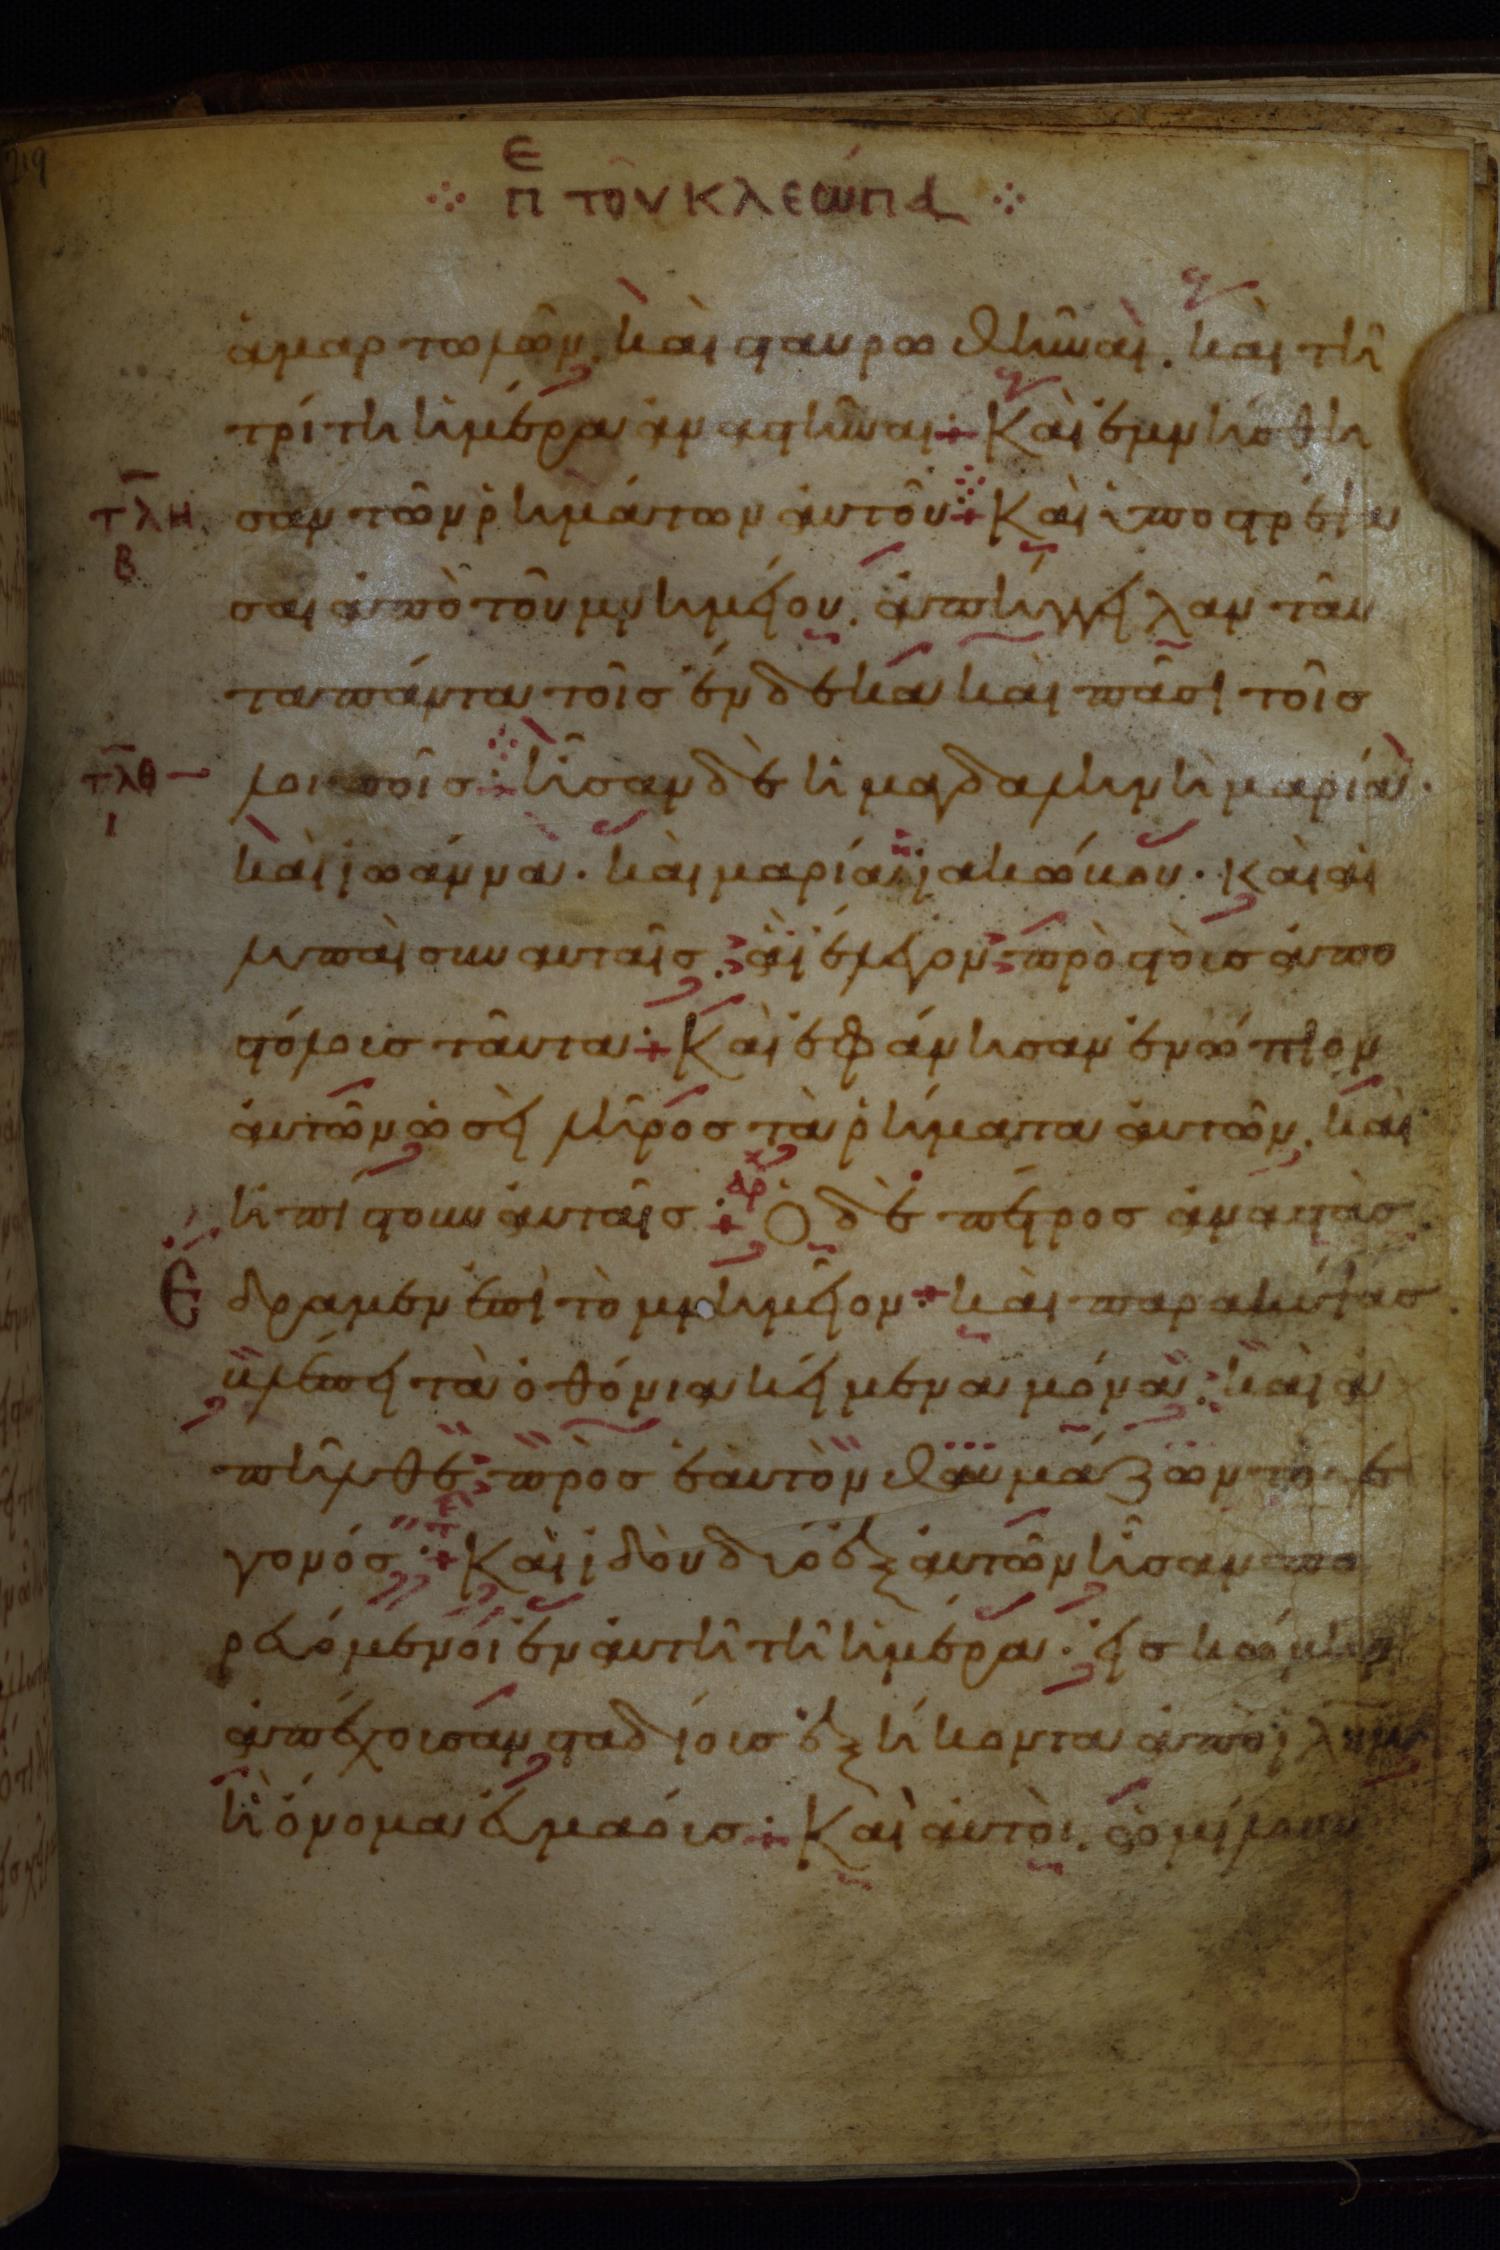 219
Ε
Π τοῦ Κλεώπα
ἁμαρτωλῶν. καὶ σταυρωθῆναι. καὶ τῆ
τρίτη ἡμέρα ἀναστῆναι + Καὶ ἐμνήσθη
τλη σαν τῶν ῥημάτων ἀυτοῦ + Καὶ ὑποστρέψα
β
σαι ἀπὸ τοῦ μνημείου. ἀπήγγειλαν ταῦ
τα πάντα τοῖς ἕνδεκα καὶ πᾶσι τοῖς
τλθ λοιποῖς + ἦσαν δὲ ἡ μαγδαληνὴ μαρία.
ι
καὶ ἰωάννα. καὶ μαρία ἰακώβου. καὶ αἱ
λοιπαὶ συν αυταῖς. αἱ ἔλεγον πρὸς τοὺς ἀπο
στόλους ταῦτα + Καὶ ἐφάνησαν ἐνώπιον
ἀυτῶν ὡσεὶ λῆρος τὰ ῥήματα ἀυτῶν. καὶ
ἠπίστουν ἀυταῖς + αρ Ὁ δὲ πέτρος ἀναστὰς.
Ἔ δραμεν ἐπὶ τὸ μνημεῖον + καὶ παρακύψας.
βλέπει τὰ ὀθόνια κείμενα μόνα. καὶ ἀ
πῆλθε πρὸς ἑαυτὸν θαυμάζων τὸ γε
γονός + Καὶ ἰδοὺ δύο ἐξ ἀυτῶν ἦσαν πο
ρευόμενοι ἐν ἀυτῆ τῆ ἡμέρα. εἰς κώμην
ἀπέχουσαν σταδίους ἑξήκοντα ἀπὸ ἰλημ
ἧ ὄνομα ἐμμαούς + Καὶ ἀυτοὶ. ὁμίλουν